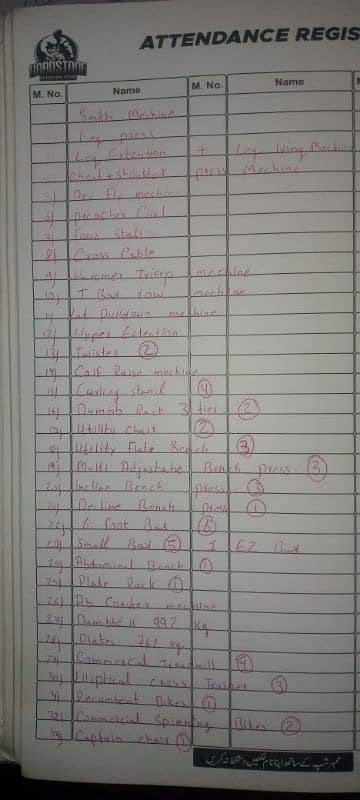 HARDSTONE
ATTENDANCE REGIS
M. No. Name M. No. Name
Smith Mechine
Leg press
Leg Extention + Leg lying Mechin
chest + shoulder press Mechine
5) Dec Fly mechine
6) preacher Curl
7) Four Stati
8) Cross Cable
9) Hummer Tricep mechine
10) T Bar row mechine
11) Lat Pulldown mechine
12) Hyper Extention
13) Twister 2
14) Calf Raise mechine
15) Curling stand 4
16) Dumbb Rack 3 tier 2
17) Utility chair 2
18) Utility Flate Bench 3
19) Multi Adjustabe Bench press 3
20) Incline Bench press 3
21) Decline Bench press 1
22) 6 foot Bar 6
23) Small Bar 5 1 EZ Bar
24) Abdominal Bench 1
25) Plate Rack 1
26) Ab Coaster mechine
27) Dumbbell 997 kg
28) Plates 767 kg
29) Commercial Treadmill 4
30) Elliptical cross Trainer 3
31) Recumbent Bikes 1
32) Commercial Spinning Bikes 2
33) Captain chair 1